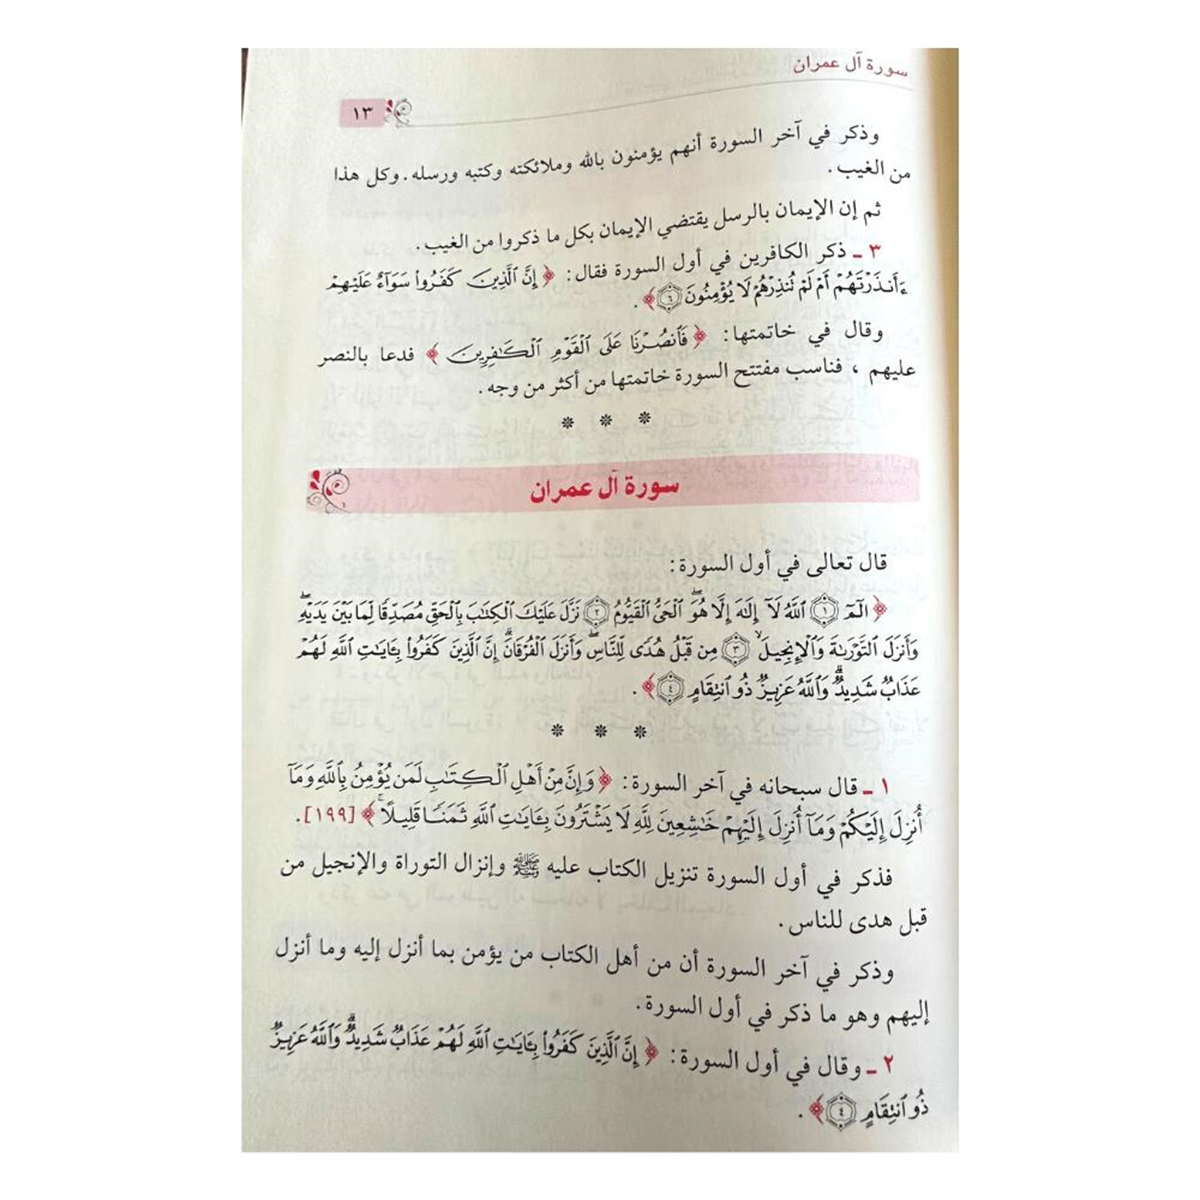 سورة آل عمران
١٣
وذكر في آخر السورة أنهم يؤمنون بالله وملائكته وكتبه ورسله. وكل هذا
من الغيب.
ثم إن الإيمان بالرسل يقتضي الإيمان بكل ما ذكروا من الغيب.
٣ ـ ذكر الكافرين في أول السورة فقال: ﴿إِنَّ ٱلَّذِينَ كَفَرُواْ سَوَآءٌ عَلَيْهِمْ
ءَأَنذَرْتَهُمْ أَمْ لَمْ تُنذِرْهُمْ لَا يُؤْمِنُونَ ٦﴾.
وقال في خاتمتها: ﴿فَٱنصُرْنَا عَلَى ٱلْقَوْمِ ٱلْكَٰفِرِينَ﴾ فدعا بالنصر
عليهم ، فناسب مفتتح السورة خاتمتها من أكثر من وجه.
* * *
سورة آل عمران
قال تعالى في أول السورة:
﴿الٓمٓ ١ ٱللَّهُ لَآ إِلَٰهَ إِلَّا هُوَ ٱلْحَىُّ ٱلْقَيُّومُ ٢ نَزَّلَ عَلَيْكَ ٱلْكِتَٰبَ بِٱلْحَقِّ مُصَدِّقًا لِّمَا بَيْنَ يَدَيْهِ
وَأَنزَلَ ٱلتَّوْرَىٰةَ وَٱلْإِنجِيلَ ٣ مِن قَبْلُ هُدًى لِّلنَّاسِ وَأَنزَلَ ٱلْفُرْقَانَ إِنَّ ٱلَّذِينَ كَفَرُواْ بِـَٔايَٰتِ ٱللَّهِ لَهُمْ
عَذَابٌ شَدِيدٌ وَٱللَّهُ عَزِيزٌ ذُو ٱنتِقَامٍ ٤﴾.
* * *
١ ـ قال سبحانه في آخر السورة: ﴿وَإِنَّ مِنْ أَهْلِ ٱلْكِتَٰبِ لَمَن يُؤْمِنُ بِٱللَّهِ وَمَآ
أُنزِلَ إِلَيْكُمْ وَمَآ أُنزِلَ إِلَيْهِمْ خَٰشِعِينَ لِلَّهِ لَا يَشْتَرُونَ بِـَٔايَٰتِ ٱللَّهِ ثَمَنًا قَلِيلًا﴾ [١٩٩].
فذكر في أول السورة تنزيل الكتاب عليه ﷺ وإنزال التوراة والإنجيل من
قبل هدى للناس.
وذكر في آخر السورة أن من أهل الكتاب من يؤمن بما أنزل إليه وما أنزل
إليهم وهو ما ذكر في أول السورة.
٢ ـ وقال في أول السورة: ﴿إِنَّ ٱلَّذِينَ كَفَرُواْ بِـَٔايَٰتِ ٱللَّهِ لَهُمْ عَذَابٌ شَدِيدٌ وَٱللَّهُ عَزِيزٌ
ذُو ٱنتِقَامٍ ٤﴾.